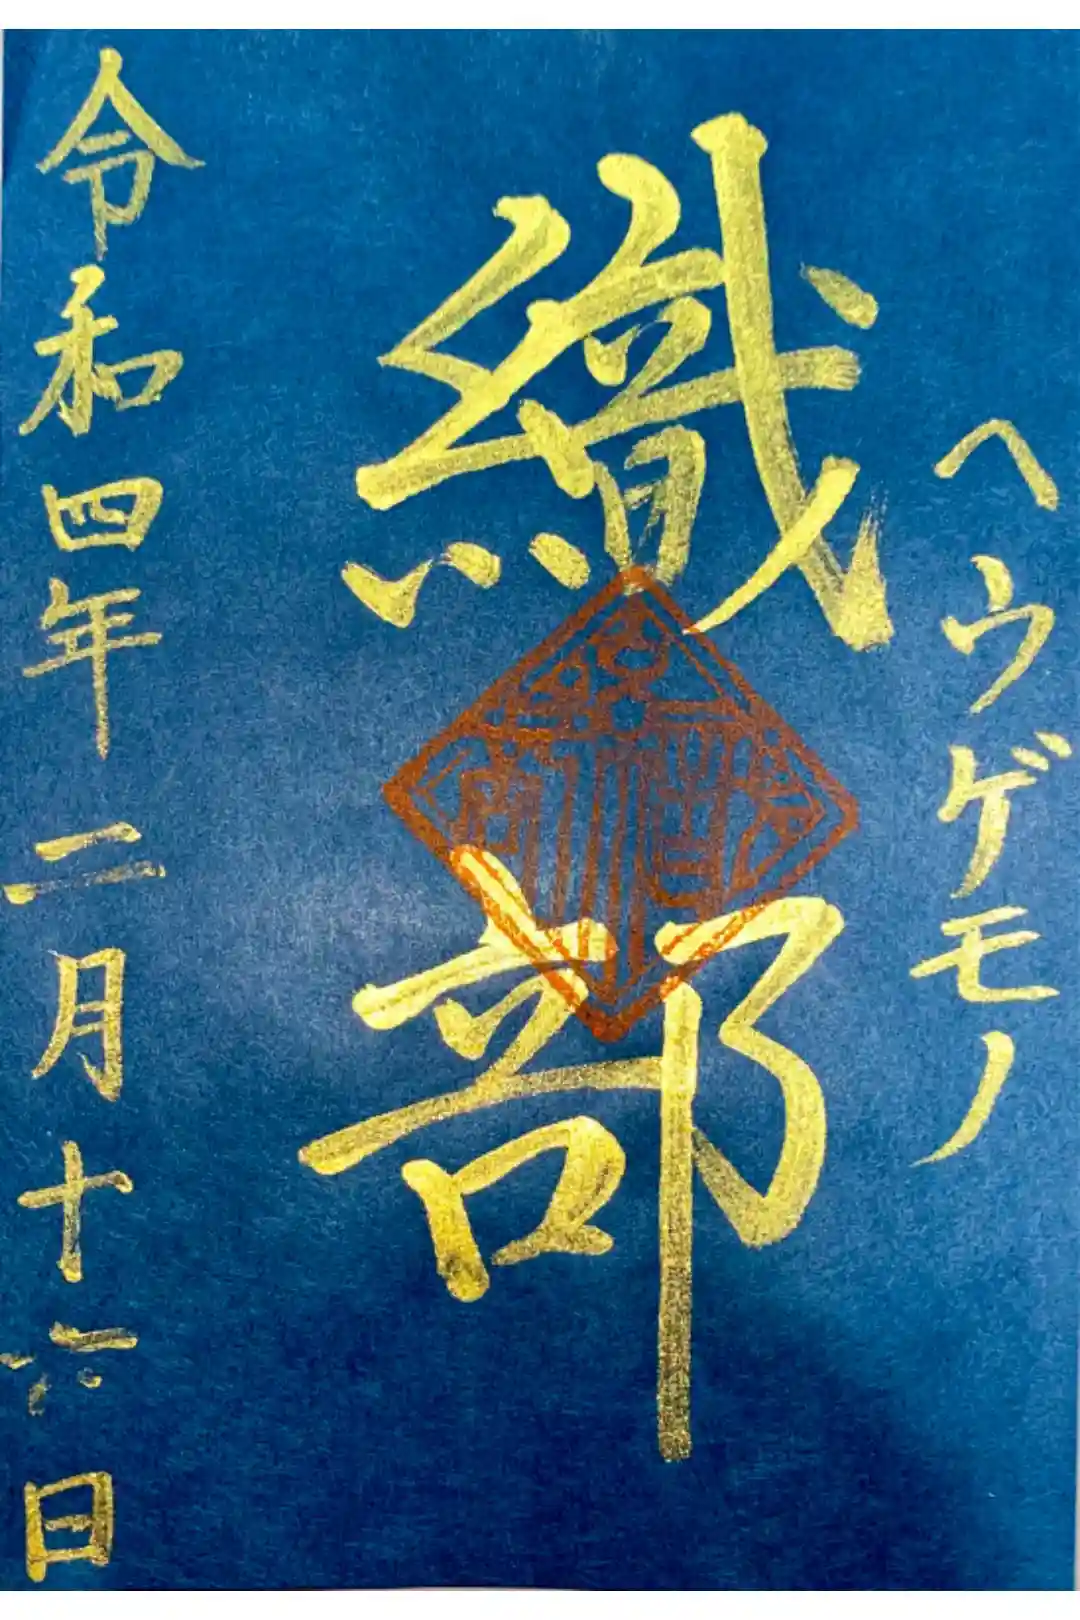 ヘウゲモノ
織部
令和四年二月十六日